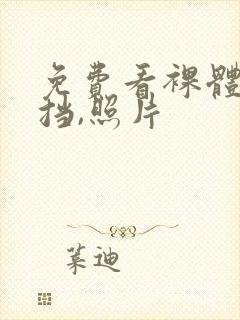 免費看裸體
挡,照片
葉迪